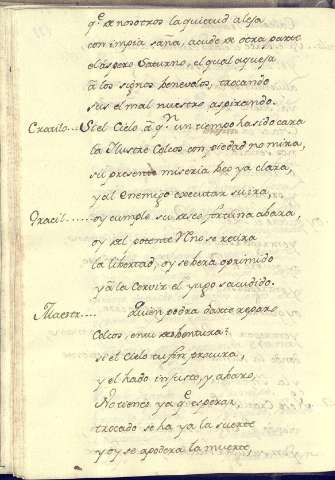 q.e de nosotros la quietud alexa
con impia saña, acude de otra parte
el áspero Saturno, el qual aquexa
â los signos benevolos, trocando
sus el mal nuestro aspirando.
Cratilo.. Si el Cielo â q.n un tiempo ha sido cara
la Ilustre Colcos con piedad no mira,
su presente miseria veo ya clara,
y al Enemigo executar su ira,
Gracil..... oy cumple su deseo fortuna abara,
oy del potente Nino se retira
la libertad, oy se berá oprimido
y â la Cerviz el yugo sacudido.
Maestr.... Quién podra darte reparo
Colcos, en tu desbentura?
si el Cielo tu fin procura,
y el hado injusto, y abaro,
No tienes ya q.e esperar
trocado se ha ya la suerte
y oy se apodera la muerte,